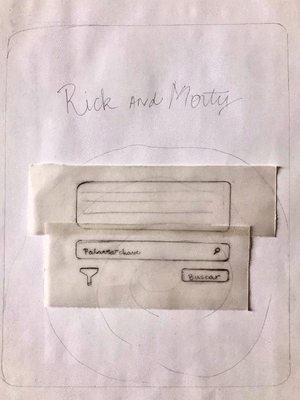 Rick and Morty
Palavra chave
Buscar